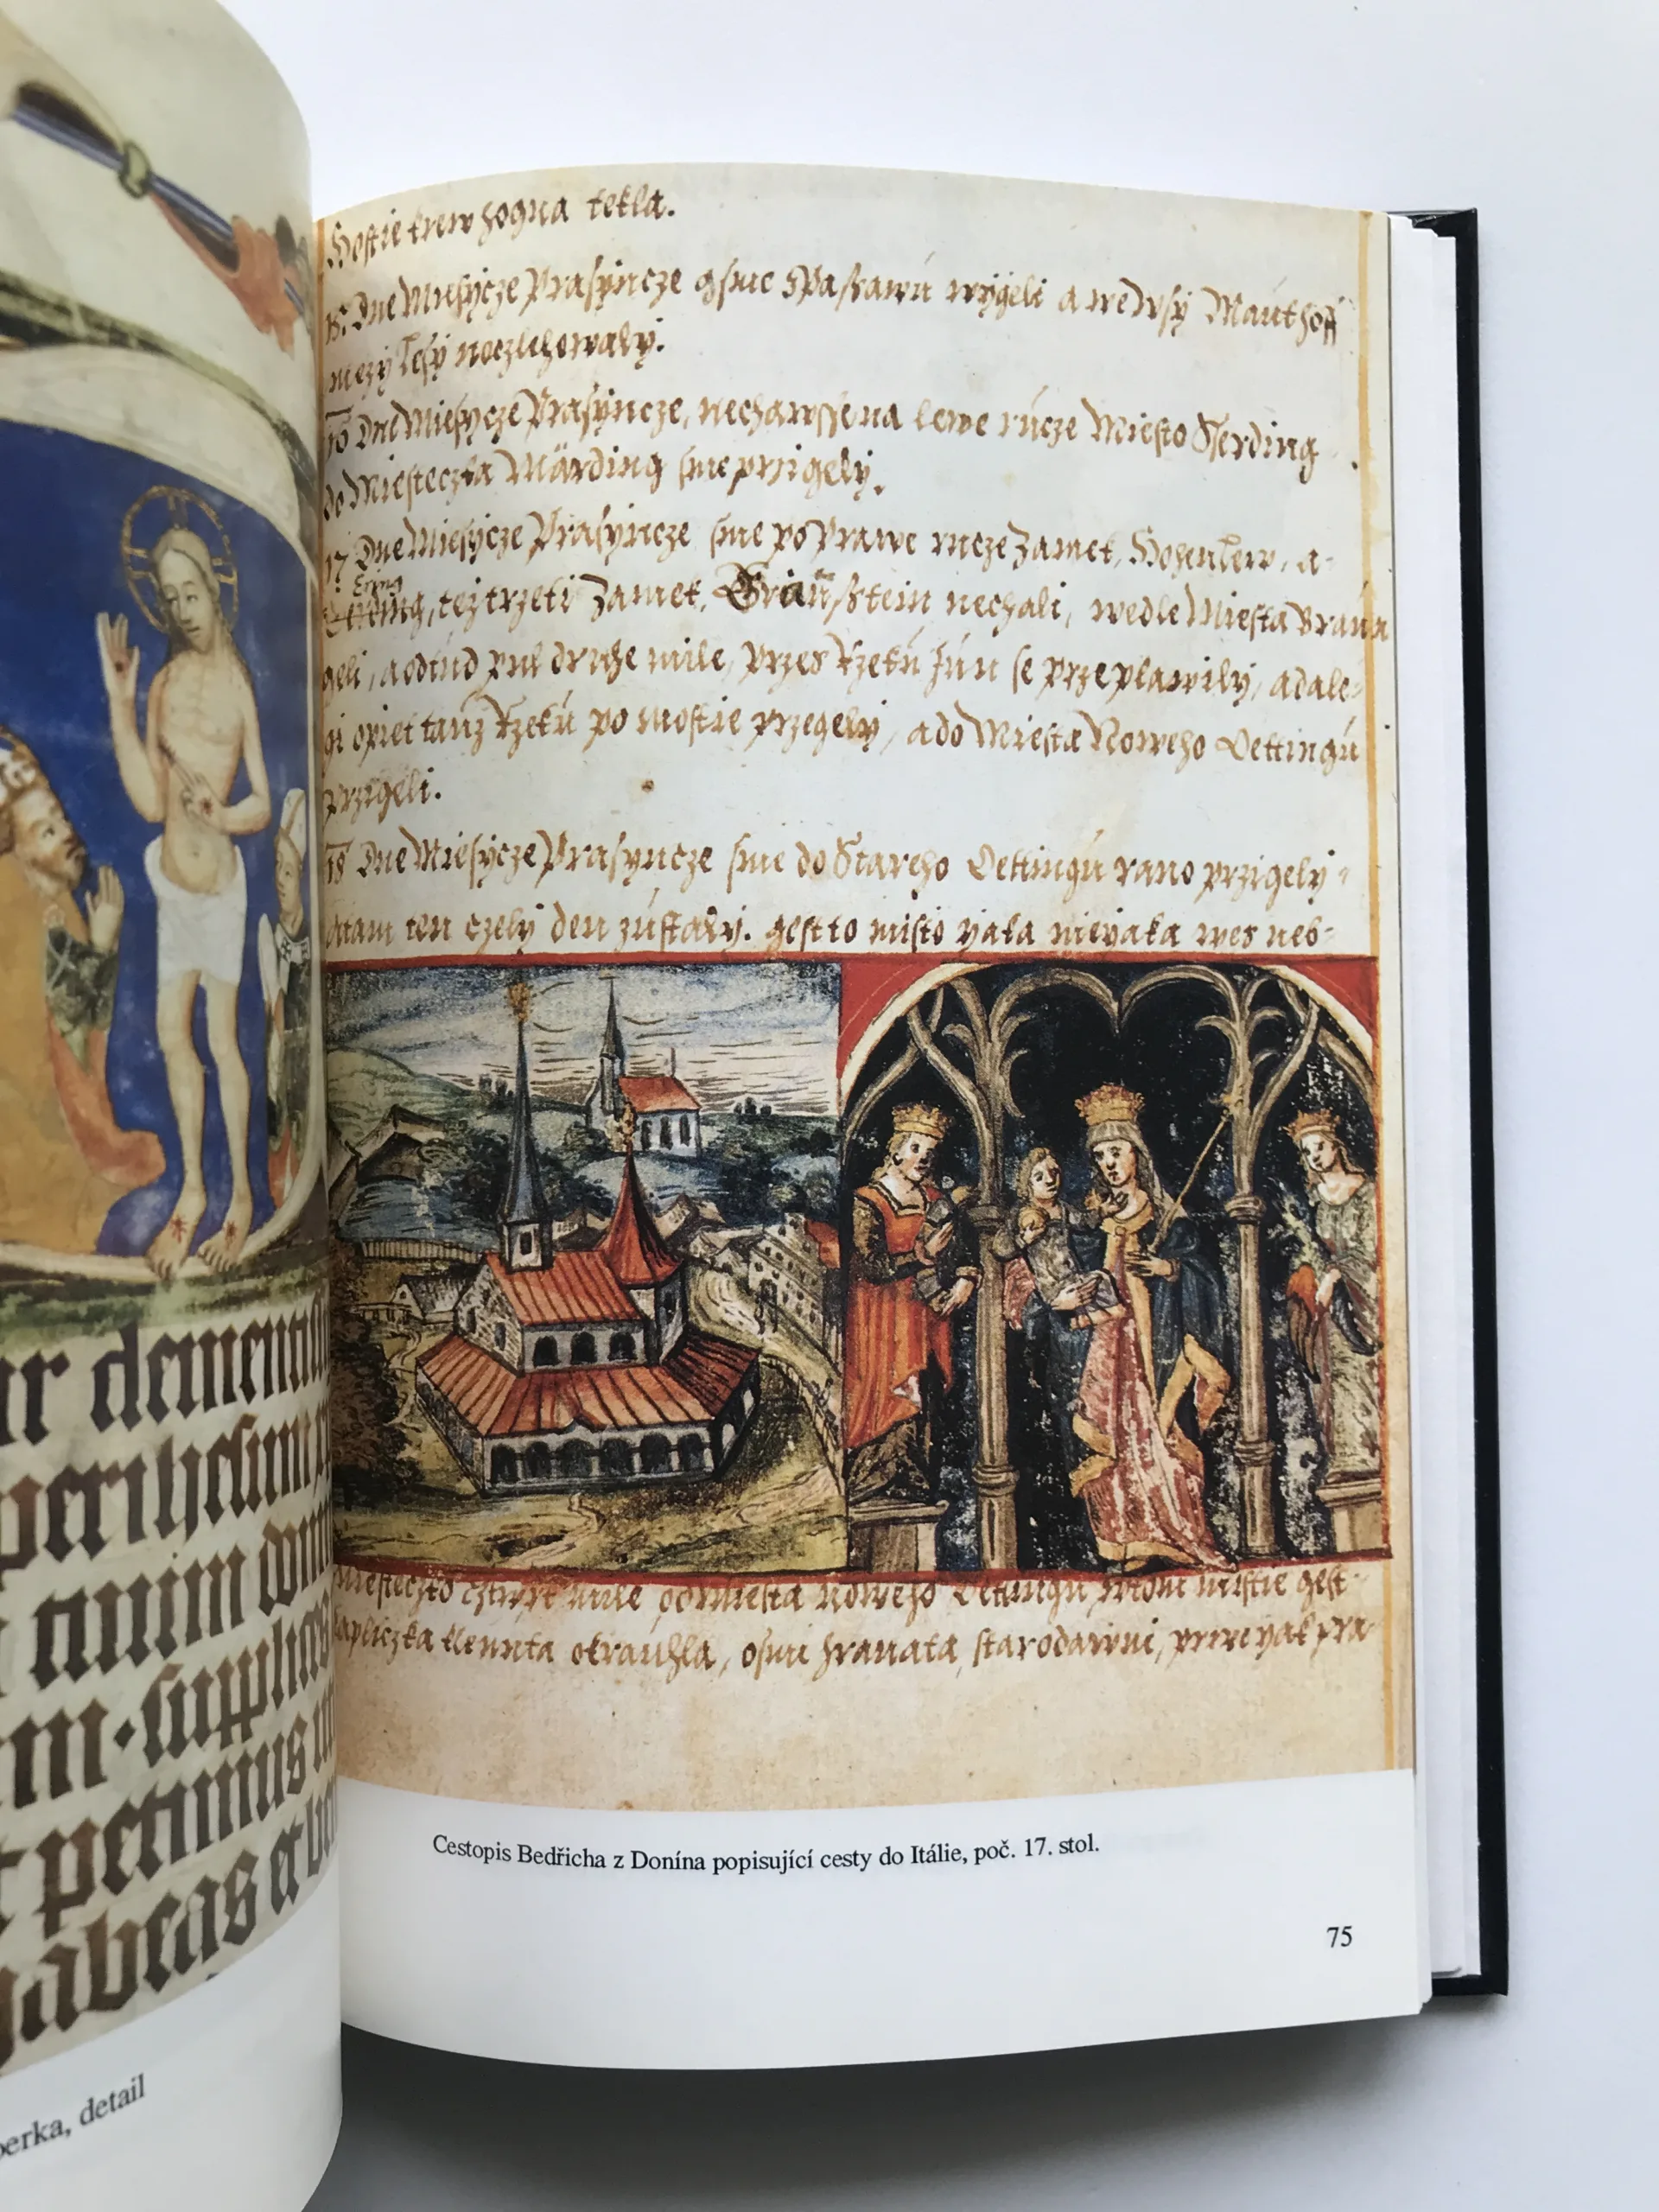 ar clementi
perihesum
nuim
m · supplic
t petimus
habeas et
perka, detail
Hostie krew hogna tekla.
15. Dne Miesycze Prasyncze gsme z Passawu wygeli a we Wsy Mauthoff
mezy lesy noczlehowaly.
16 Dne Miesycze Prasyncze, nechawsse na lewe rucze Miesto Scherding
do Miesteczka Märding sme przigely.
17 Dne Miesycze Prasyncze sme po Prawe rucze Zamek, Hohenlew, a-
Ering
tez trzeti Zamek, nechali, wedle Miesta Braun
geli, a odtud pul druhe mile, przes Rzeku Jun se przeplawily, a dale-
gi opiet tauz Rzeku po mostie przegely, a do Miesta Noweho Oettingu
przigeli.
18 Dne Miesycze Prasyncze sme do Stareho Oettingu rano przigely
a tam ten czely den zustaly. gest to misto yaka nieyaka wes neb-
miesteczko cztwrt mile od miesta noweho Oettingu wtom mistie gest
kapliczka klenuta okrauhla, osmi hranata, starodawni, prwe yak pra-
Cestopis Bedřicha z Donína popisující cesty do Itálie, poč. 17. stol.
75